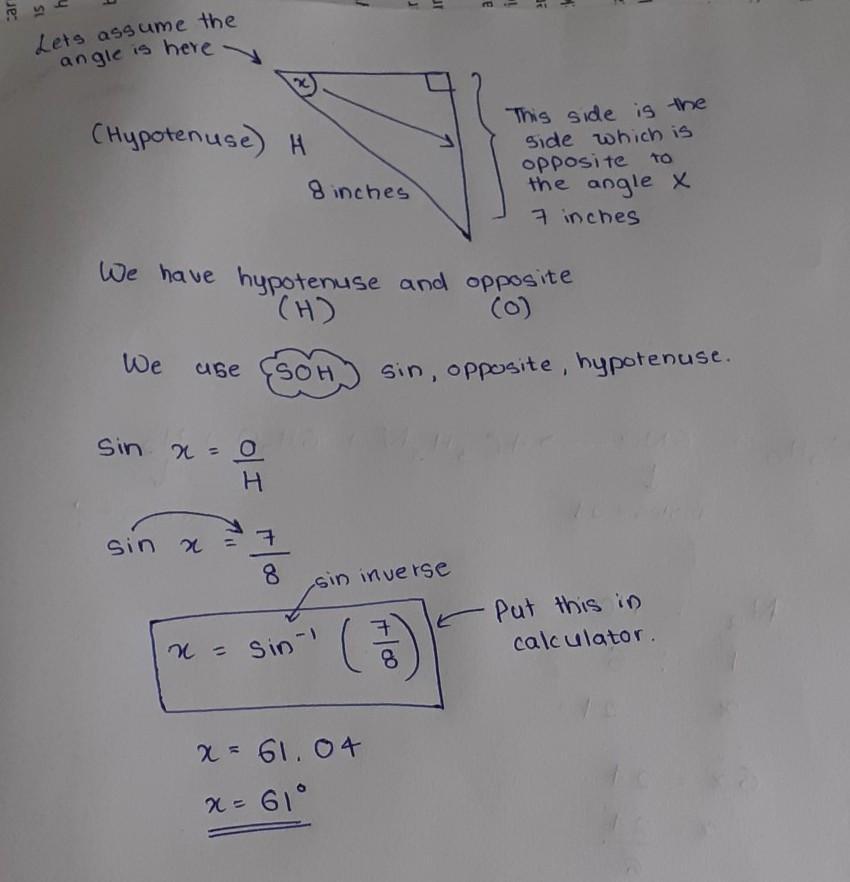 Lets assume the
angle is here
x
(Hypotenuse) H
8 inches
This side is the
side which is
opposite to
the angle X
7 inches
We have hypotenuse and opposite
(H) (O)
We use SOH sin, opposite, hypotenuse.
Sin x = O
H
sin x = 7
8
sin inverse
x = sin⁻¹ (7/8)
Put this in
calculator.
x = 61.04
x = 61°